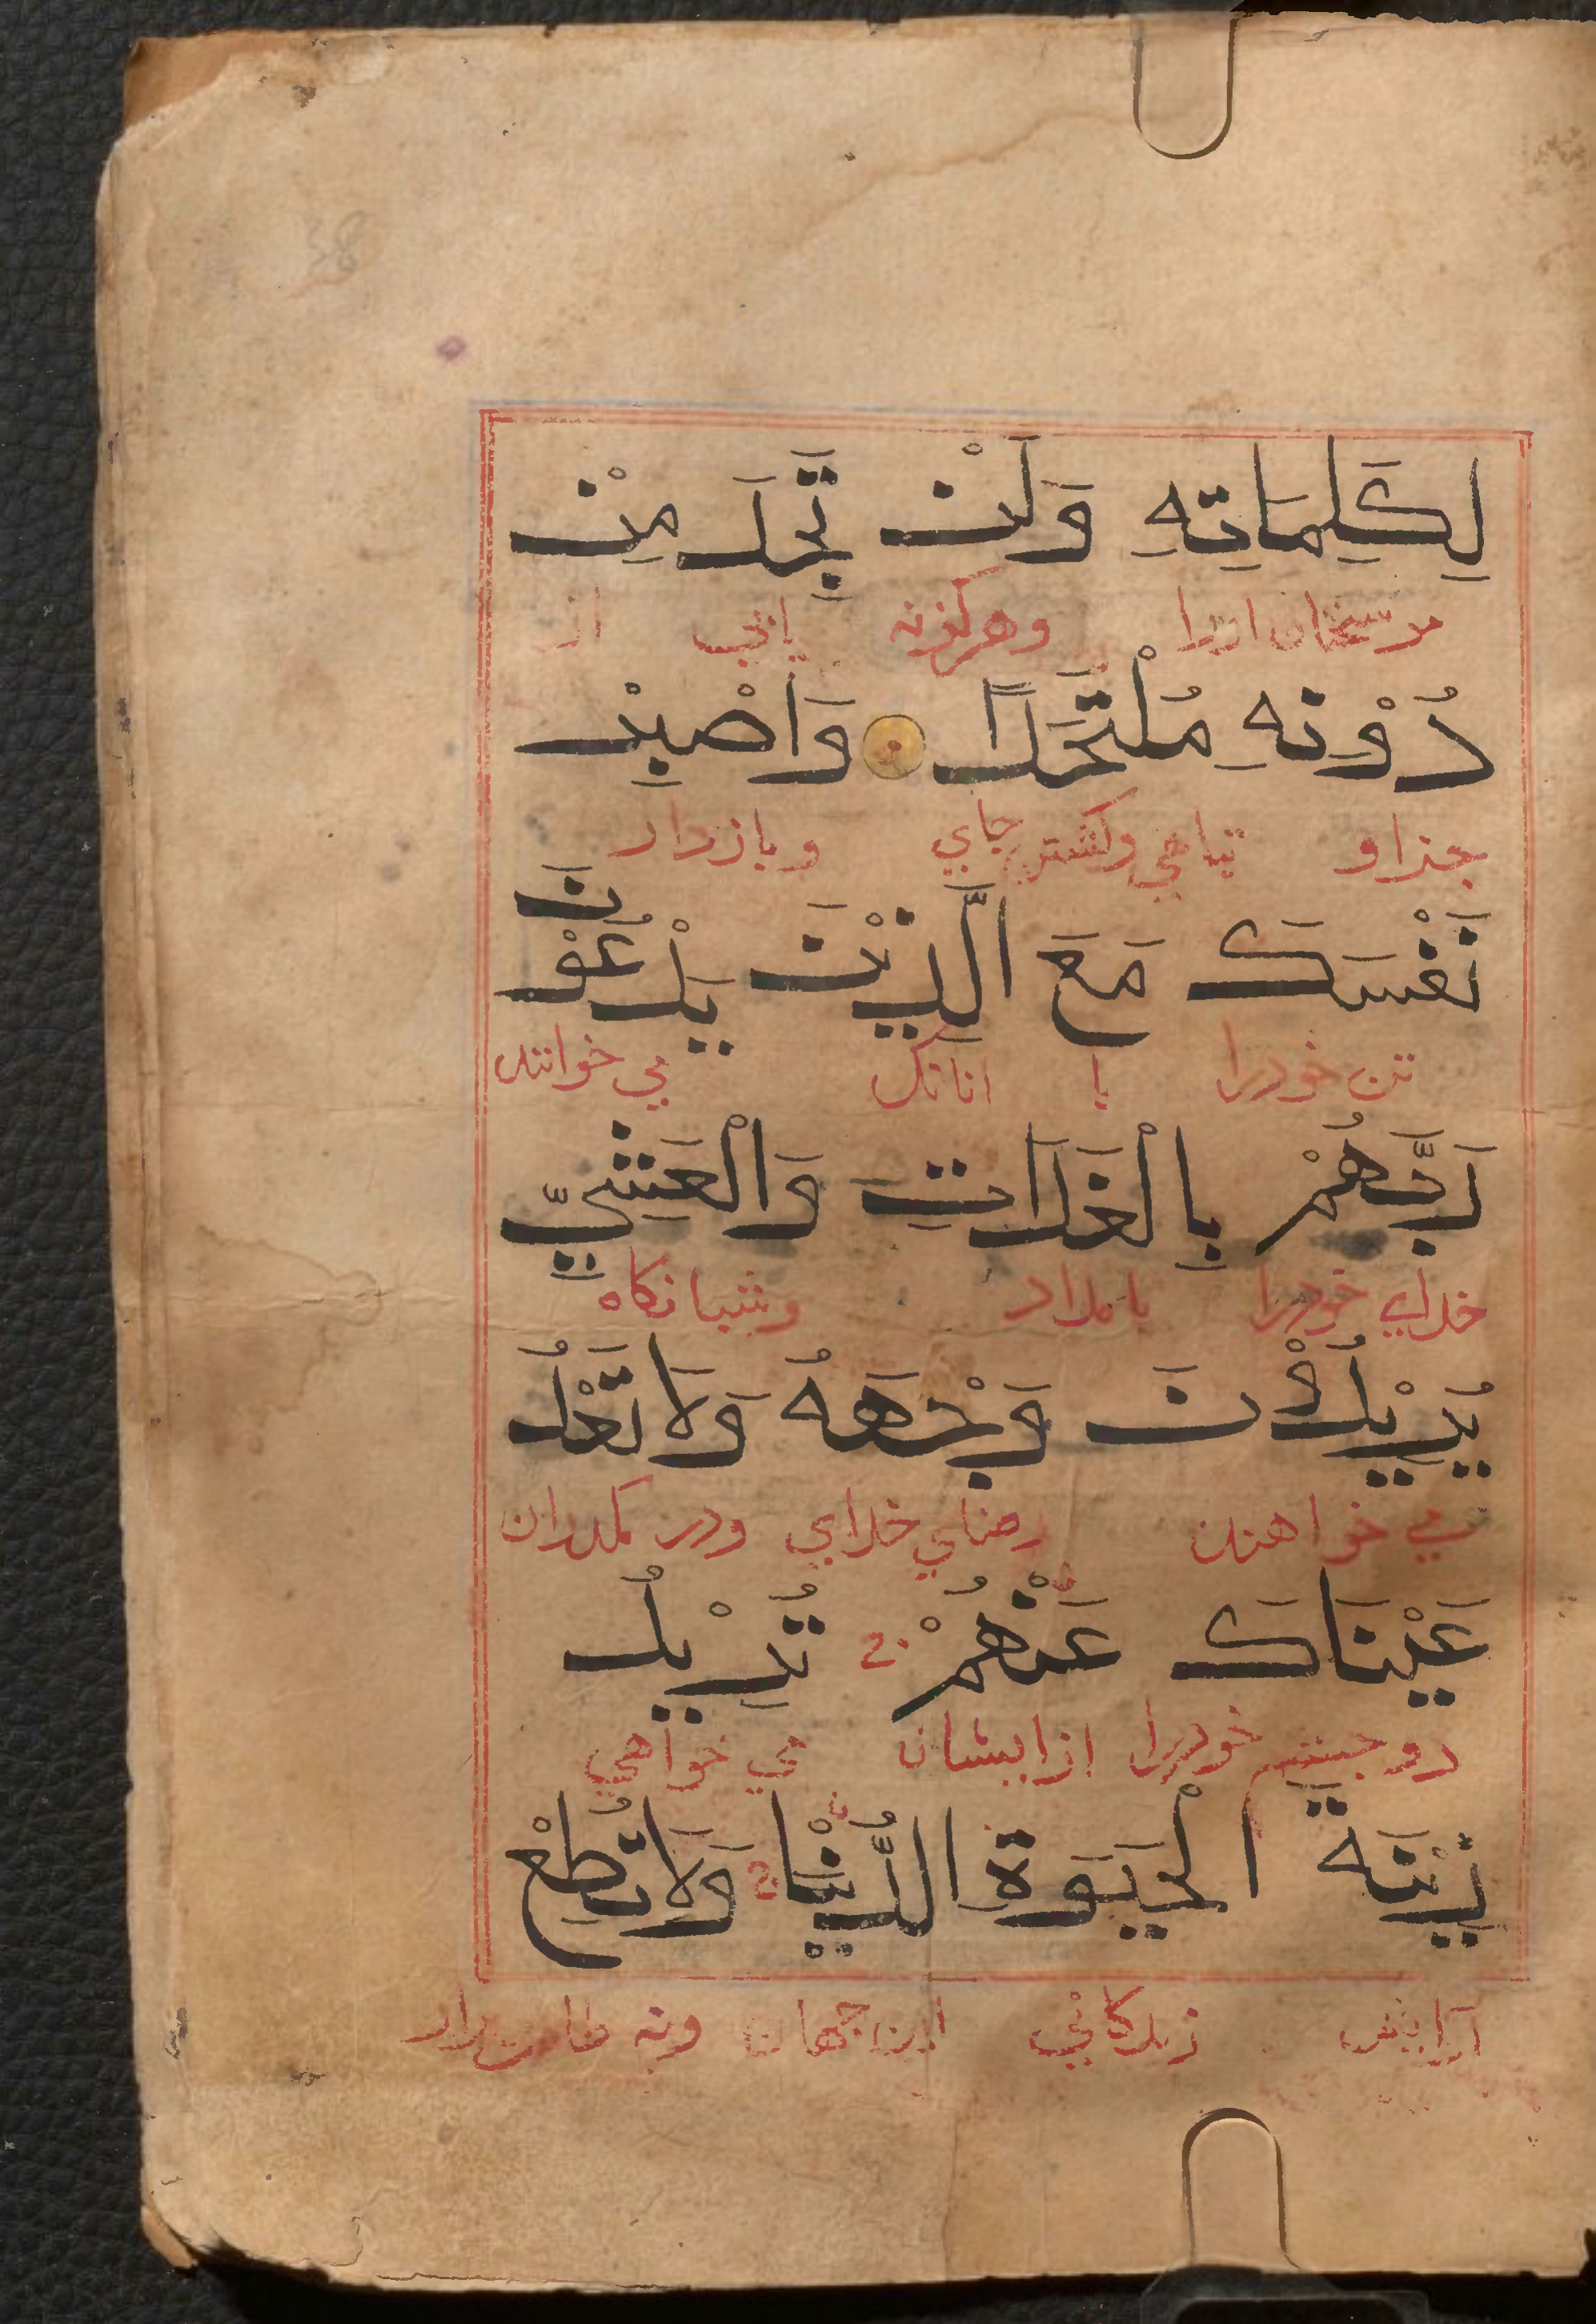 لِكَلِمَاتِهِ وَلَنْ تَجِدَ مِنْ
مر سخنان اورا وهرگزنه یابی از
دُوْنِهِ مُلْتَحَدًا وَاصْبِرْ
جذاو پناهي وگشتن جاي وبازدار
نَفْسَكَ مَعَ الَّذِيْنَ يَدْعُوْنَ
تن خودرا با آنانك مي خوانند
رَبَّهُمْ بِالْغَدَاتِ وَالْعَشِيِّ
خداي خودرا بامداد وشبانكاه
يُرِيْدُوْنَ وَجْهَهُ وَلَا تَعْدُ
مي خواهند رضاي خداي ودر مگذران
عَيْنَاكَ عَنْهُمْ تُرِيْدُ
دو چشم خودرا ازايشان مي خواهي
زِيْنَةَ الْحَيَوةِ الدُّنْيَا وَلَا تُطِعْ
آرايش زندكاني اين جهان ونه